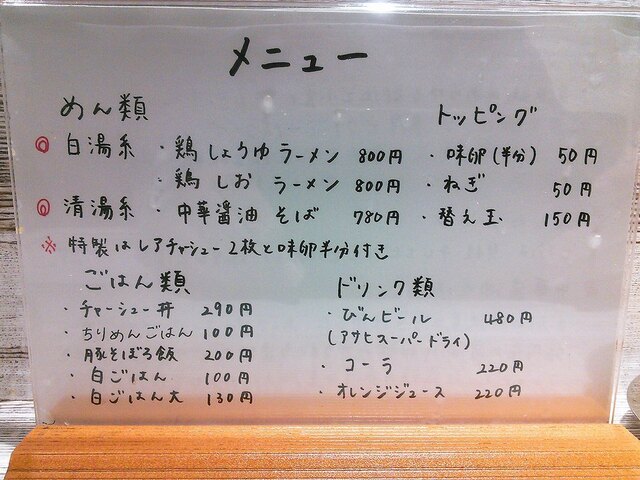 メニュー
めん類
◎白湯系 ・鶏しょうゆラーメン 800円
・鶏しおラーメン 800円
◎清湯系 ・中華醤油そば 780円
※特製はレアチャシュー2枚と味卵半分付き
トッピング
・味卵(半分) 50円
・ねぎ 50円
・替え玉 150円
ごはん類
・チャーシュー丼 290円
・ちりめんごはん 100円
・豚そぼろ飯 200円
・白ごはん 100円
・白ごはん大 130円
ドリンク類
・びんビール 480円
(アサヒスーパードライ)
・コーラ 220円
・オレンジジュース 220円